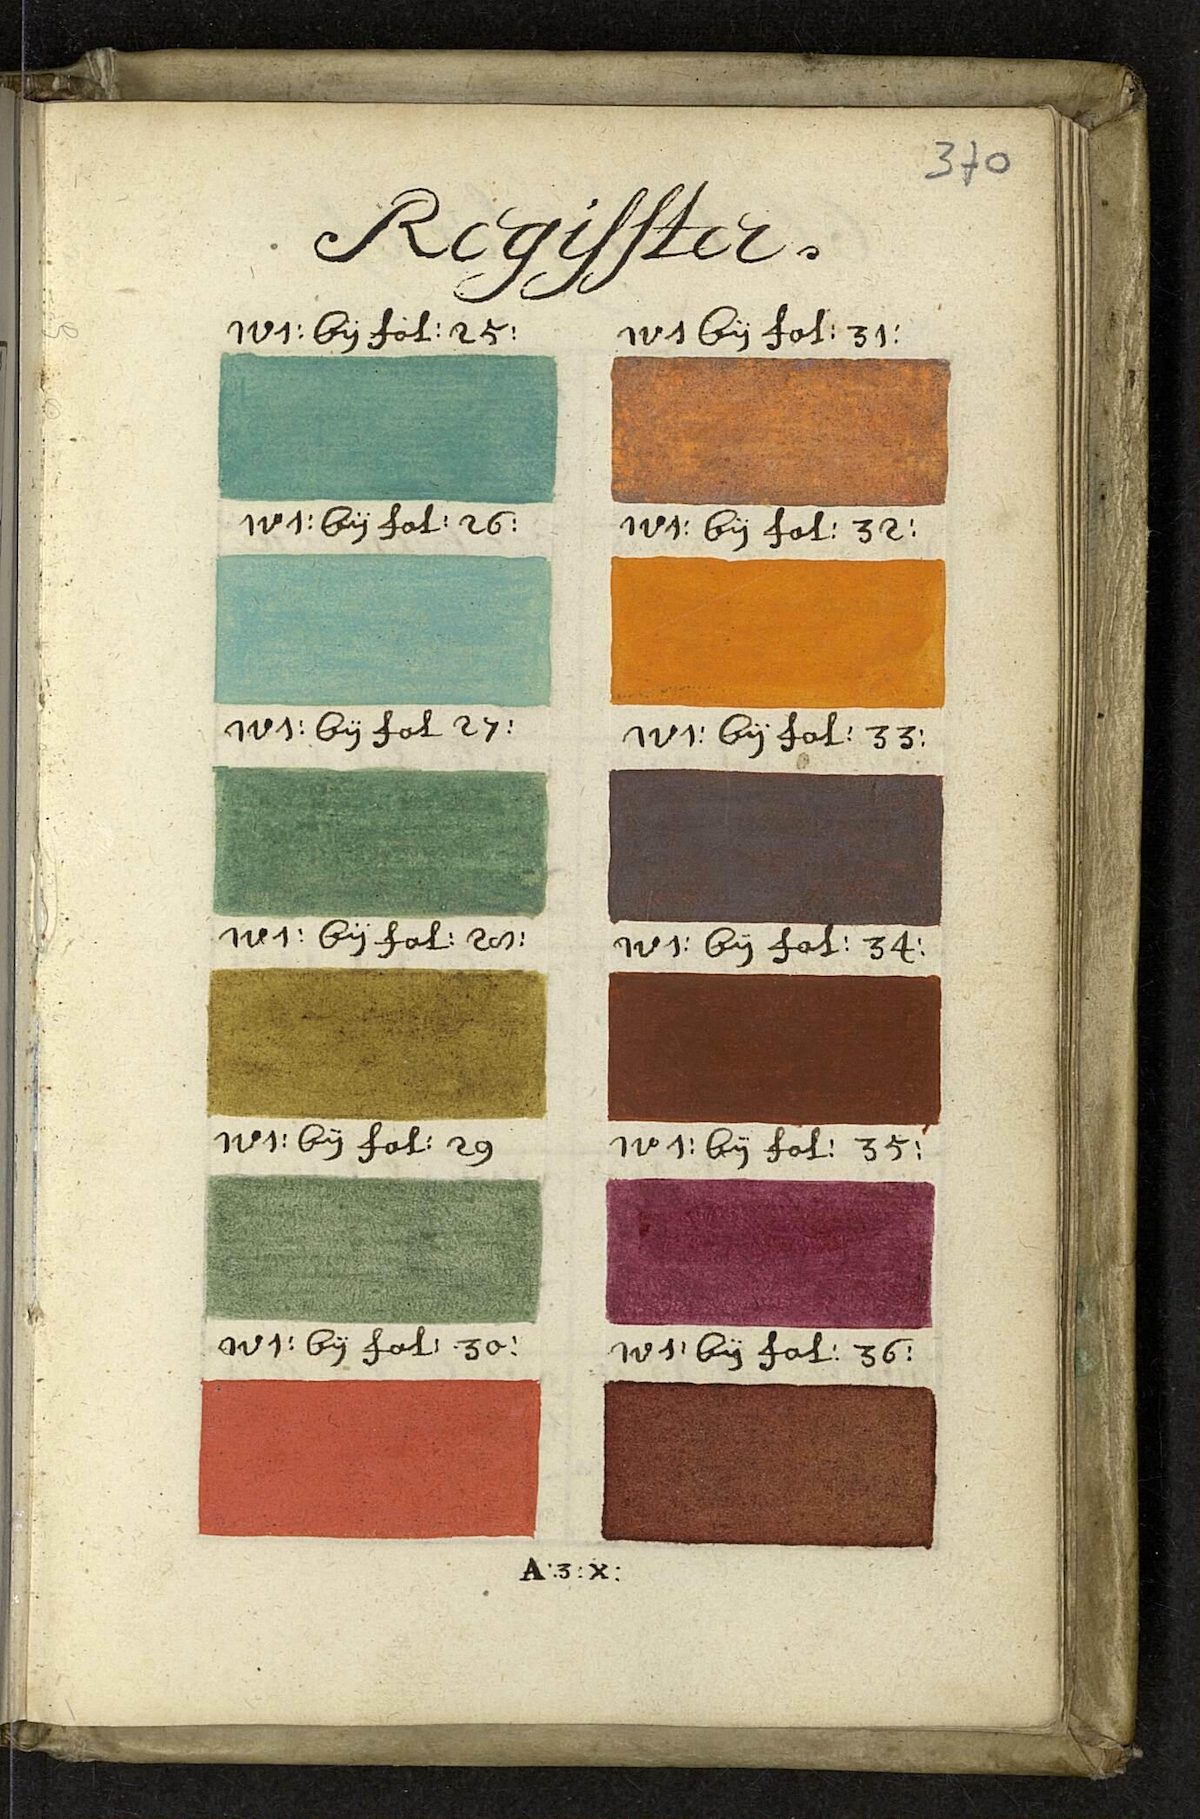 370
Regisster.
N°1: bÿ fol: 25:
N°1: bÿ fol: 26:
N°1: bÿ fol 27:
N°1: bÿ fol: 28:
N°1: bÿ fol: 29
N°1: bÿ fol: 30:
N°1 bÿ fol: 31:
N°1: bÿ fol: 32:
N°1: bÿ fol: 33:
N°1: bÿ fol: 34:
N°1: bÿ fol: 35:
N°1: bÿ fol: 36:
A:3:X: